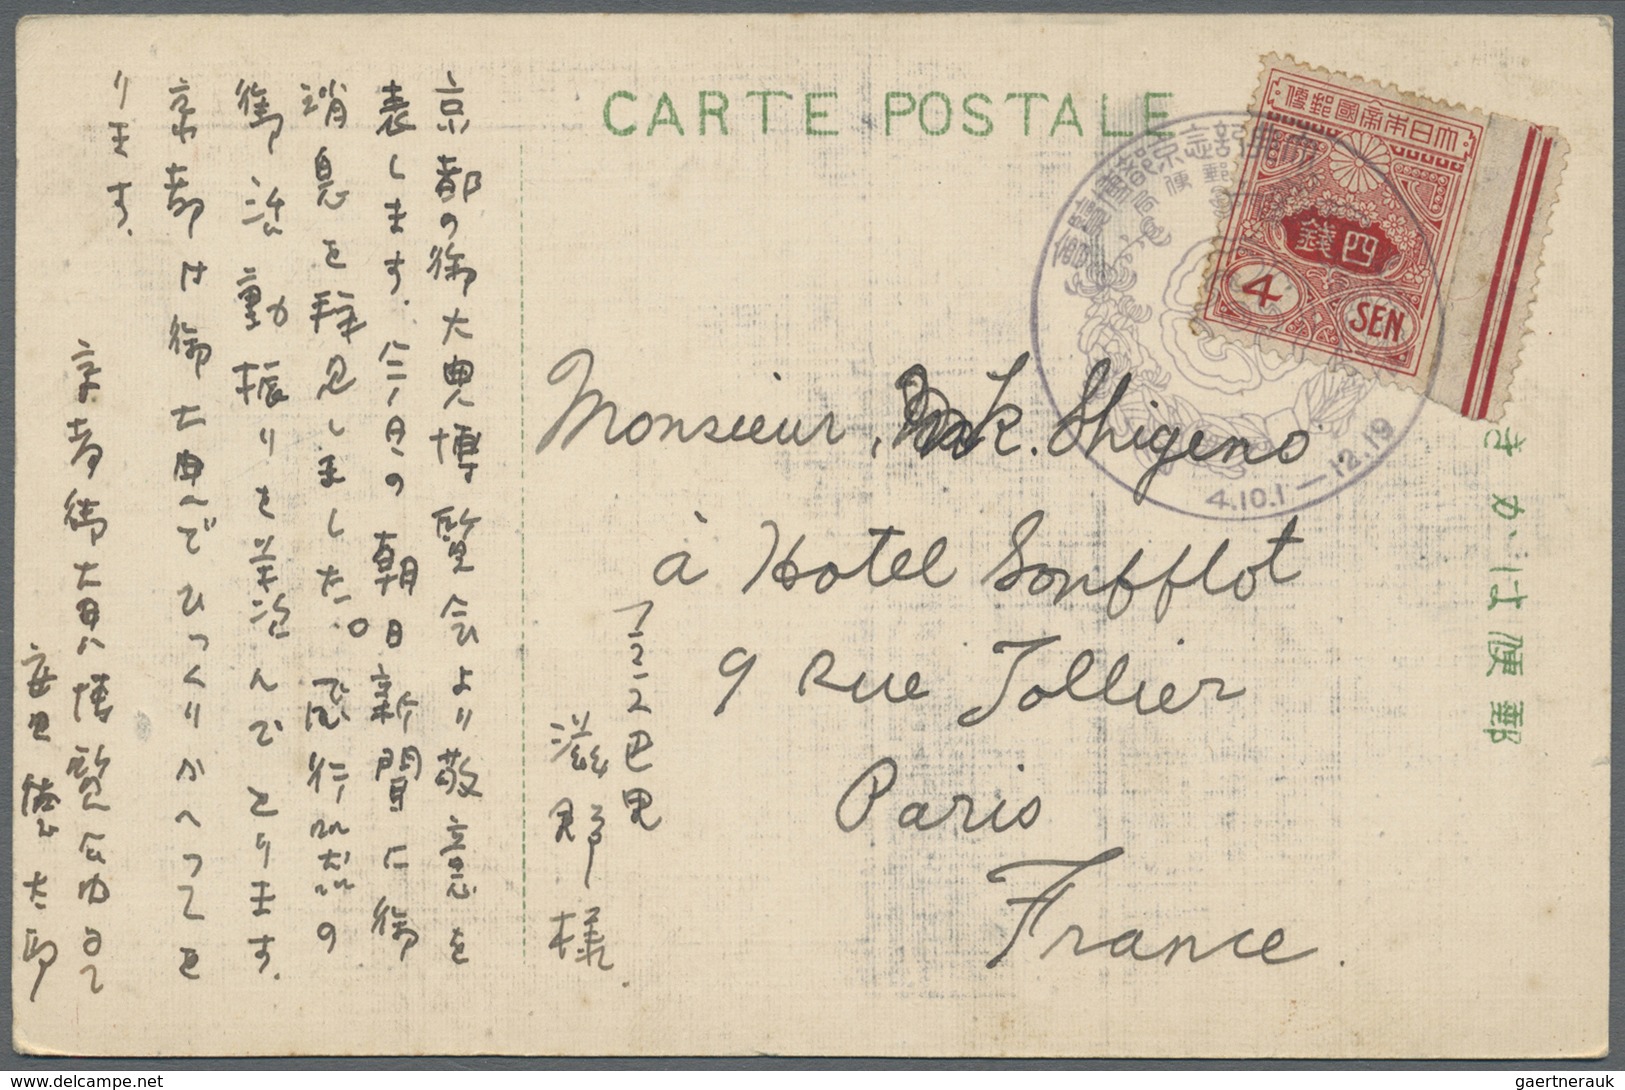 CARTE POSTALE
大日本帝國郵便
四錢
4 SEN.
4.10.1—12.19
きかは便郵
Monsieur, K. Shigeno
à Hotel Soufflot
9 Rue Tollier
Paris
France.
フランス巴里
滋野様
京都の御大典博覧会より敬意を
表します。今日の朝日新聞に御
消息を拝見しました。飛行界の
御活動振りを喜んでとります。
京都は御大典でひっくりかへつてを
ります。
京都御大典博覧会内にて
太郎
gaertnerauk @ www.delcampe.net